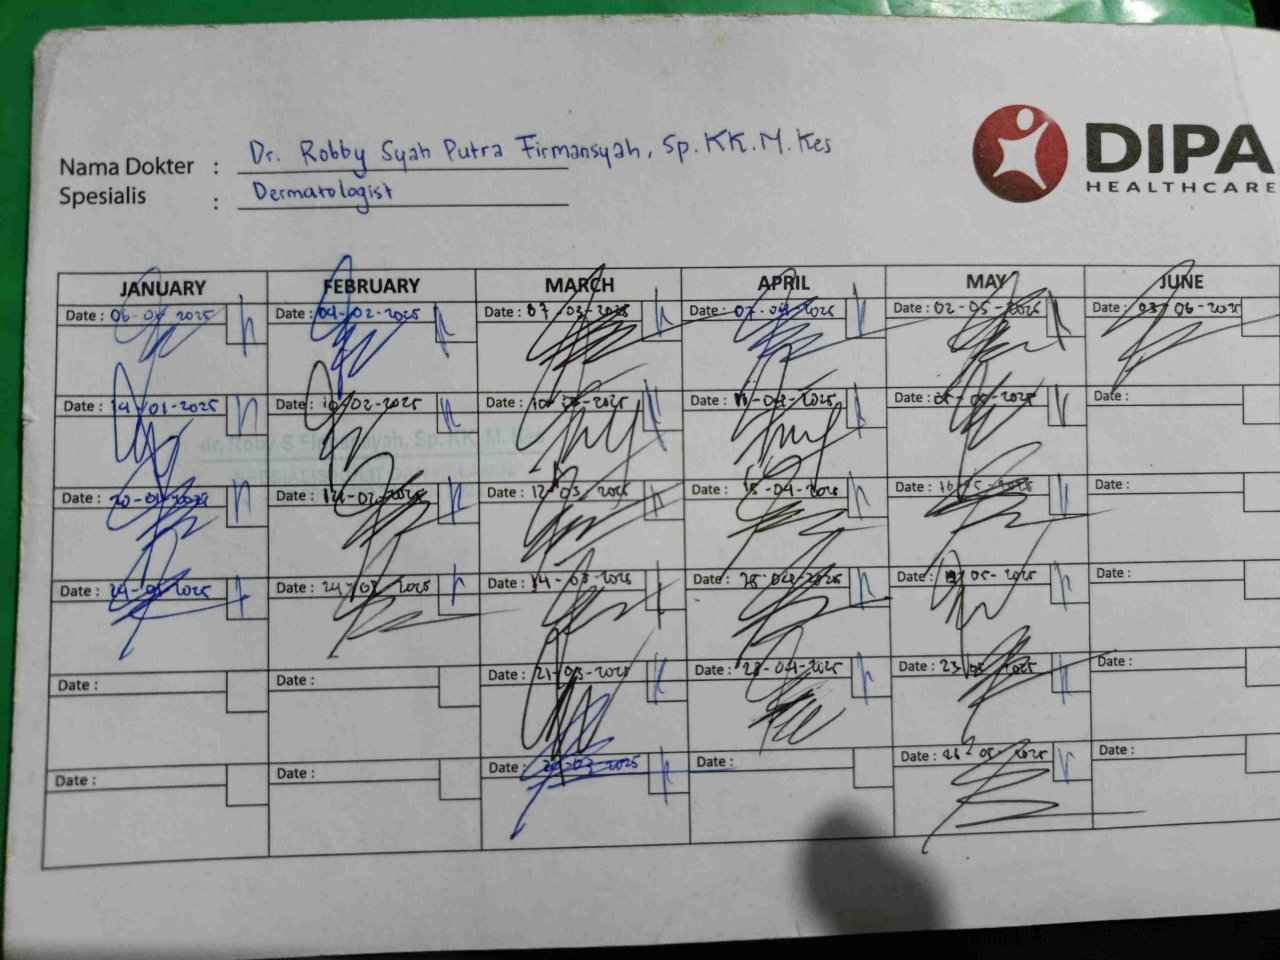 Nama Dokter : Dr. Robby Syah Putra Firmansyah, Sp.KK.M.Kes
Spesialis : Dermatologist
DIPA
HEALTHCARE
JANUARY FEBRUARY MARCH APRIL MAY JUNE
Date : 06-01-2025 Date : 04-02-2025 Date : 07-03-2025 Date : 07-04-2025 Date : 02-05-2025 Date : 03-06-2025
Date : 14-01-2025 Date : 10-02-2025 Date : 10-03-2025 Date : 11-04-2025 Date : Date :
dr. Roby S Firmansyah, Sp.KK, M.Kes
Date : 20-01-2025 Date : Date : 12-03-2025 Date : 15-04-2025 Date : 16-05-2025 Date :
Date : 24-01-2025 Date : 24-02-2025 Date : 14-03-2025 Date : 25-04-2025 Date : 19-05-2025 Date :
Date : Date : Date : 21-03-2025 Date : 28-04-2025 Date : 23-05-2025 Date :
Date : Date : Date : Date : Date : 26-05-2025 Date :